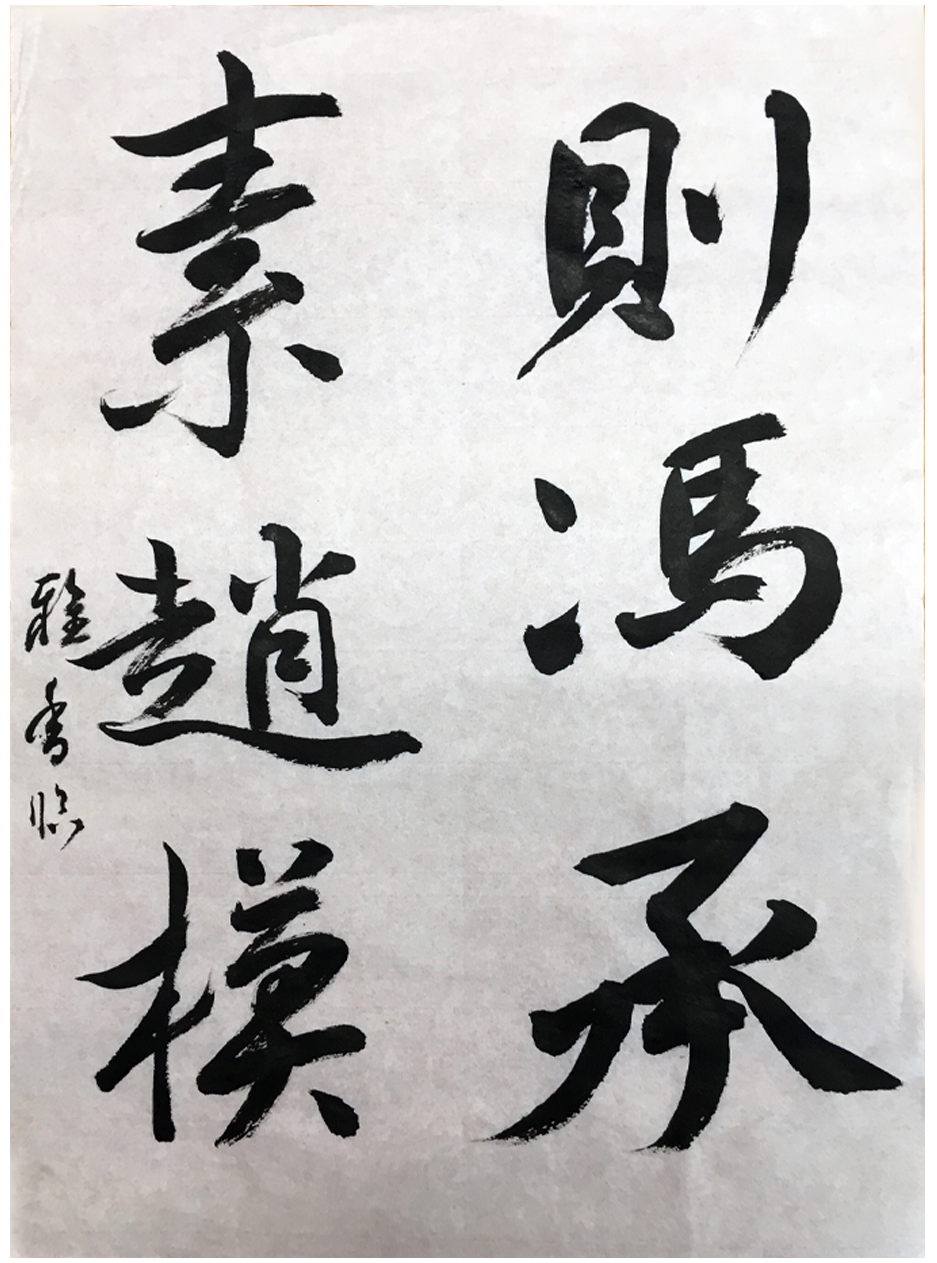 則馮承
素趙模
雅香臨